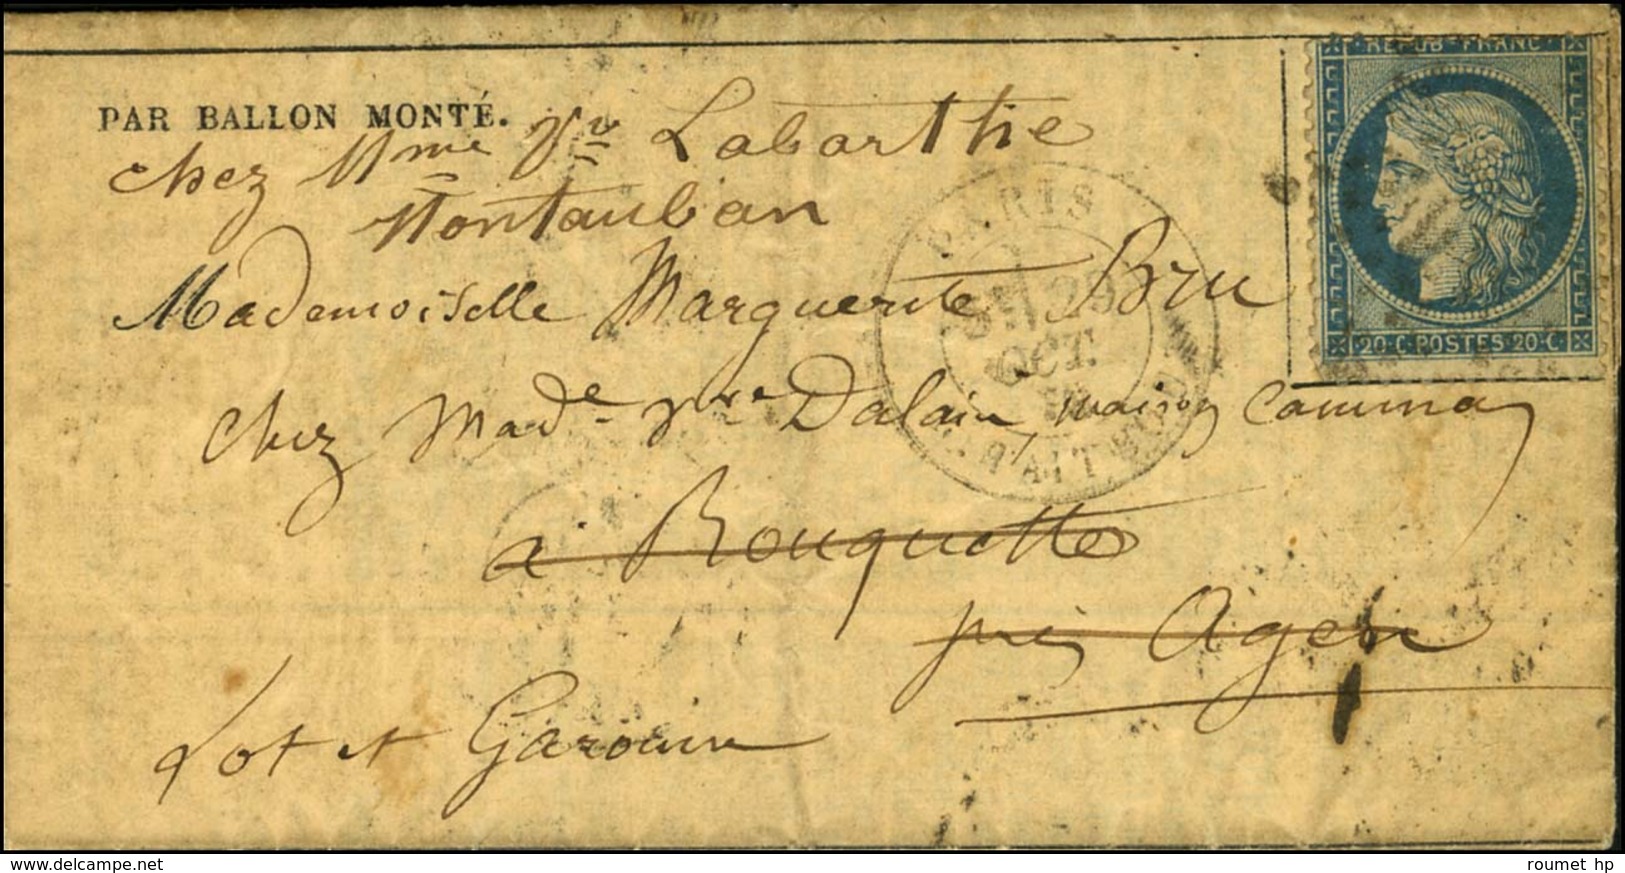 PAR BALLON MONTÉ.
REPUB·FRANC
chez Mme Vve Labarthe
Montauban
PARIS
29
OCT.
Mademoiselle Marguerite Bru
20·C·POSTES·20·C
chez Made Vve Dalain, maison Camma
à Rouquette
près Agen
Lot et Garonne
www.delcampe.net
roumet hp